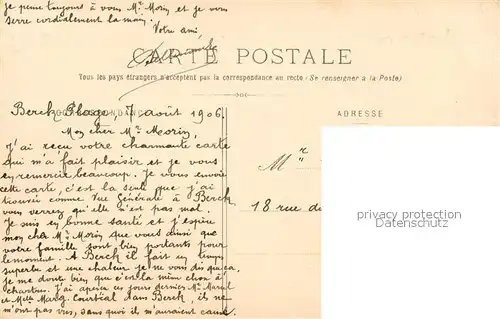 je pense toujours à vous Mr Morin et je vous
serre cordialement la main.
Votre ami,
CARTE POSTALE
Tous les pays étrangers n'acceptent pas la correspondance au recto (Se renseigner à la Poste)
CORRESPONDANCE
ADRESSE
Berck Plage 7 août 1906.
Mon cher Mr Morin,
J'ai reçu votre charmante carte
qui m'a fait plaisir et je vous
en remercie beaucoup. Je vous envoie
cette carte, c'est la seule que j'ai
trouvée comme Vue Générale à Berck
vous verrez qu'elle n'est pas mal.
Je suis en bonne santé et j'espère
mon cher Mr Morin que vous ainsi que
votre famille sont bien portants pour
le moment. A Berck il fait un temps
superbe et une chaleur je ne vous dis que ça.
je me doute bien que c'est la même chose à
chartres. J'ai aperçu ces jours derniers Mr Marcel
et Melle Marg Courtéal dans Berck, ils ne
m'ont pas vus, sans quoi ils m'auraient causé.
Mr
18 rue de
privacy protection
Datenschutz